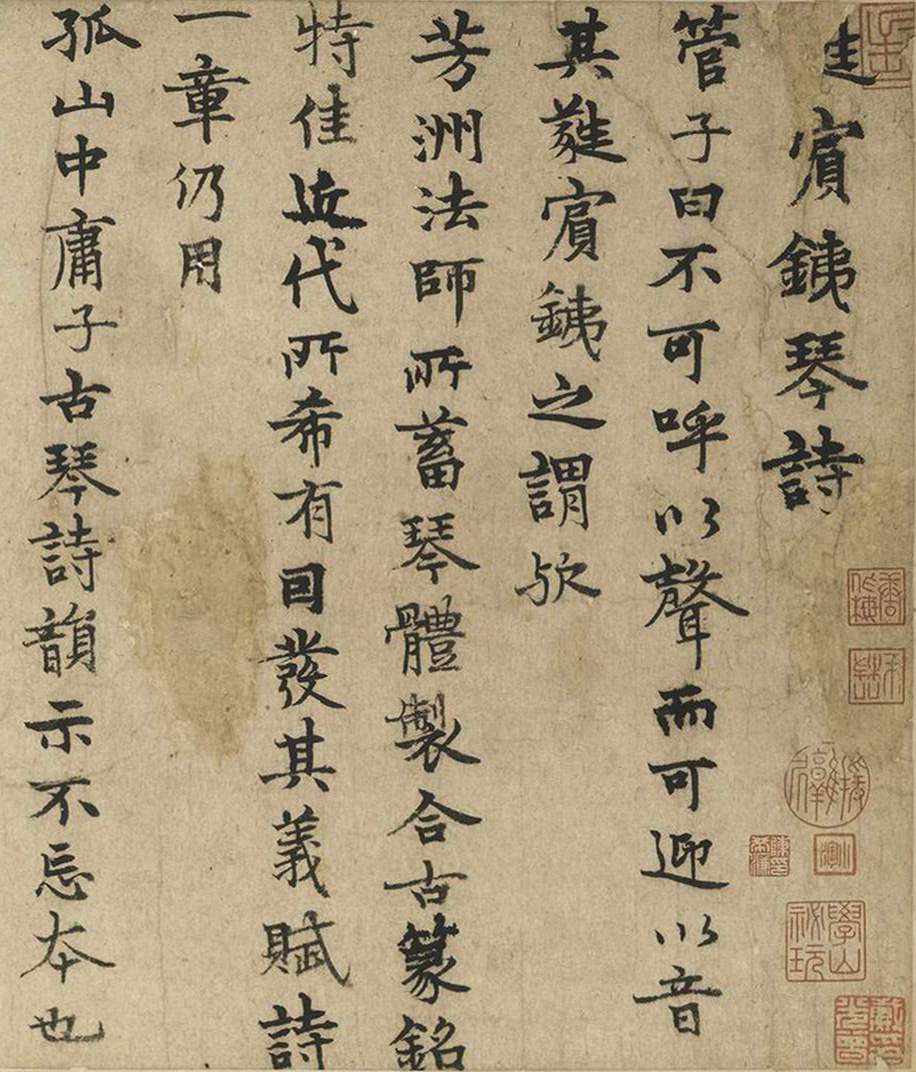 賔銕琴詩
管子曰不可呼以聲而可迎以音
其蕤賔銕之謂歟
芳洲法師所蓄琴體製合古篆銘
特佳近代所希有囙發其義賦詩
一章仍用
孤山中庸子古琴詩韻示不忘夲也
學山祕玩